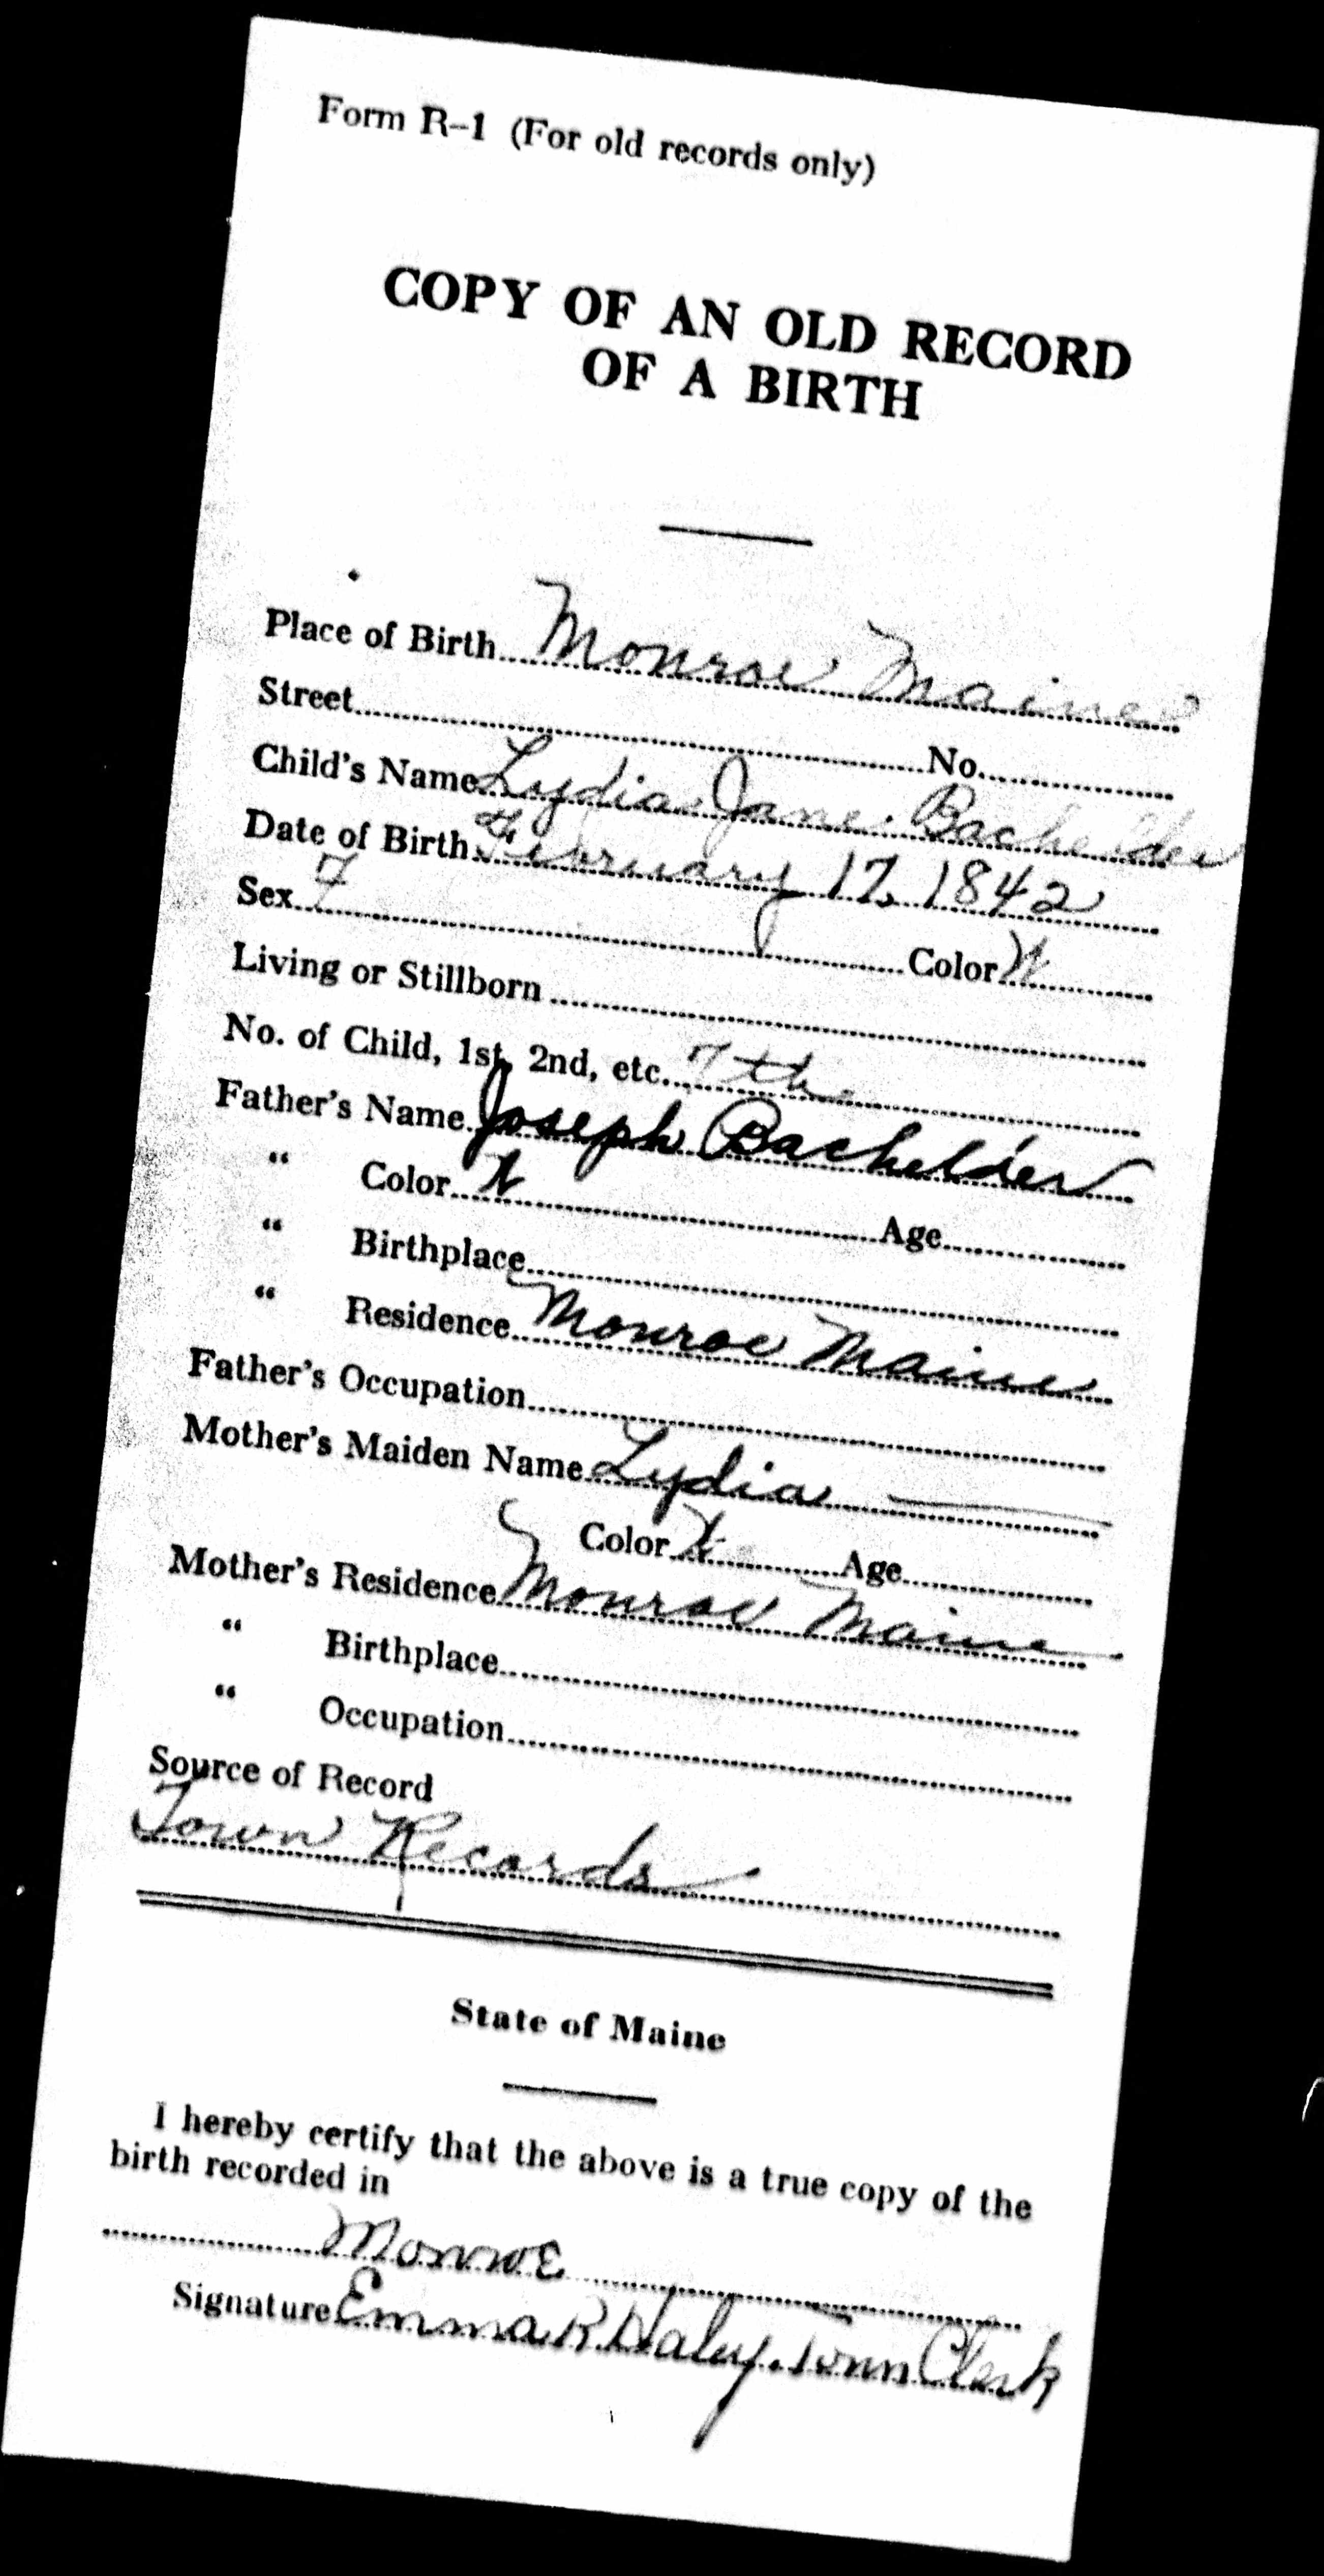 Form R-1 (For old records only)
COPY OF AN OLD RECORD
OF A BIRTH
Place of Birth Monroe Maine
Street No.
Child's Name Lydia Jane Bachelder
Date of Birth February 17, 1842
Sex F Color W
Living or Stillborn
No. of Child, 1st, 2nd, etc. 7th
Father's Name Joseph Bachelder
" Color W Age
" Birthplace
" Residence Monroe Maine
Father's Occupation
Mother's Maiden Name Lydia —
Color W Age
Mother's Residence Monroe Maine
" Birthplace
" Occupation
Source of Record
Town Records
State of Maine
I hereby certify that the above is a true copy of the
birth recorded in
Monroe
Signature Emma R. Haley. Town Clerk